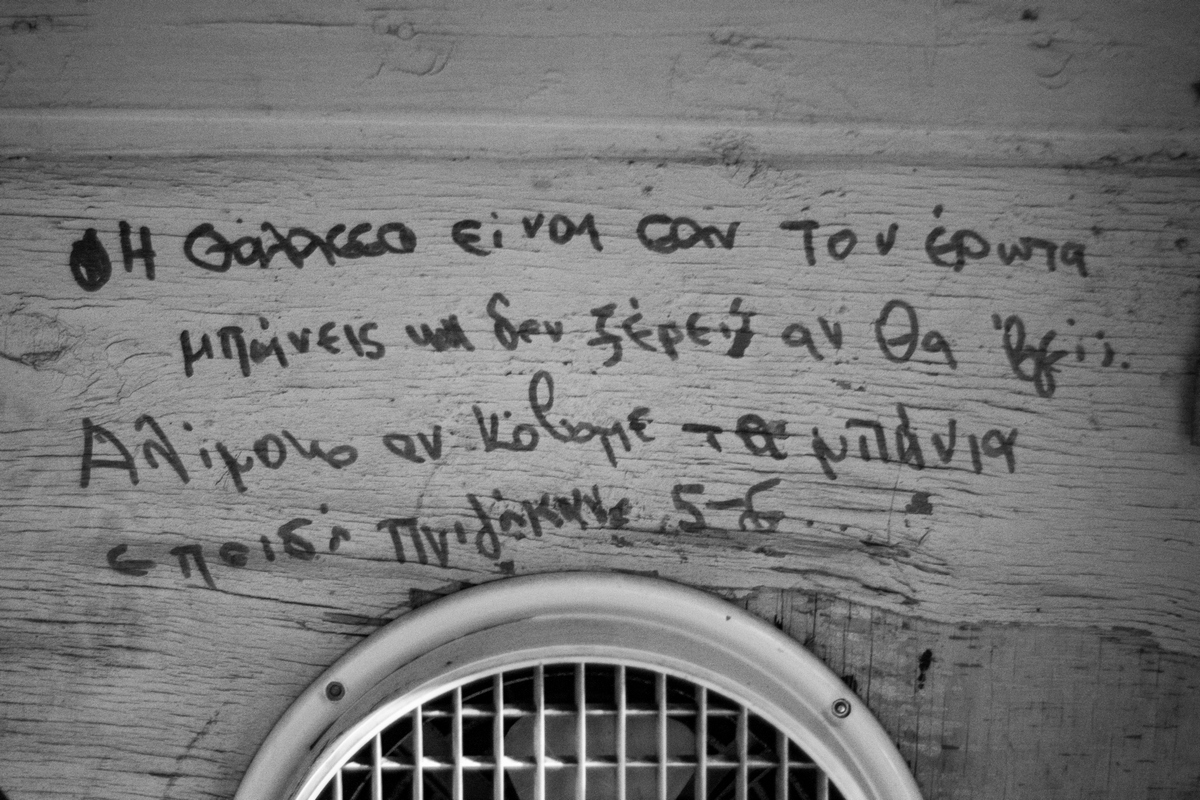 Η θάλασσα είναι σαν τον έρωτα
μπαίνεις και δεν ξέρεις αν θα βγείς.
Αλίμονο αν κόβαμε τα μπάνια
επειδή πνιγήκανε 5-6.